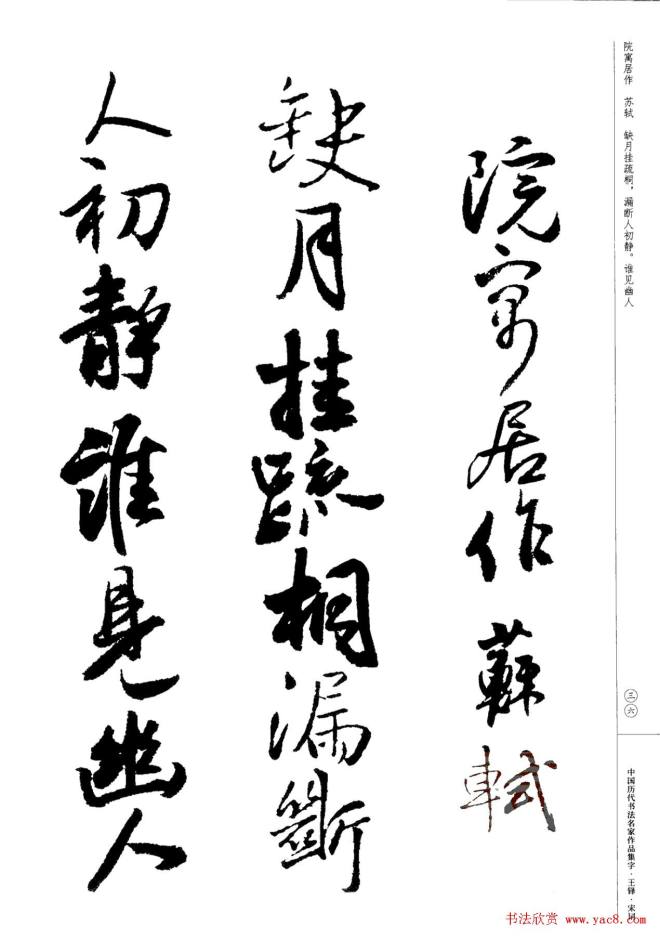 院寓居作　苏轼　缺月挂疏桐，漏断人初静。谁见幽人
院寓居作 蘇軾
缺月挂疏桐漏斷
人初靜誰見幽人
三六
中国历代书法名家作品集字·王铎·宋词
书法欣赏 www.yac8.com